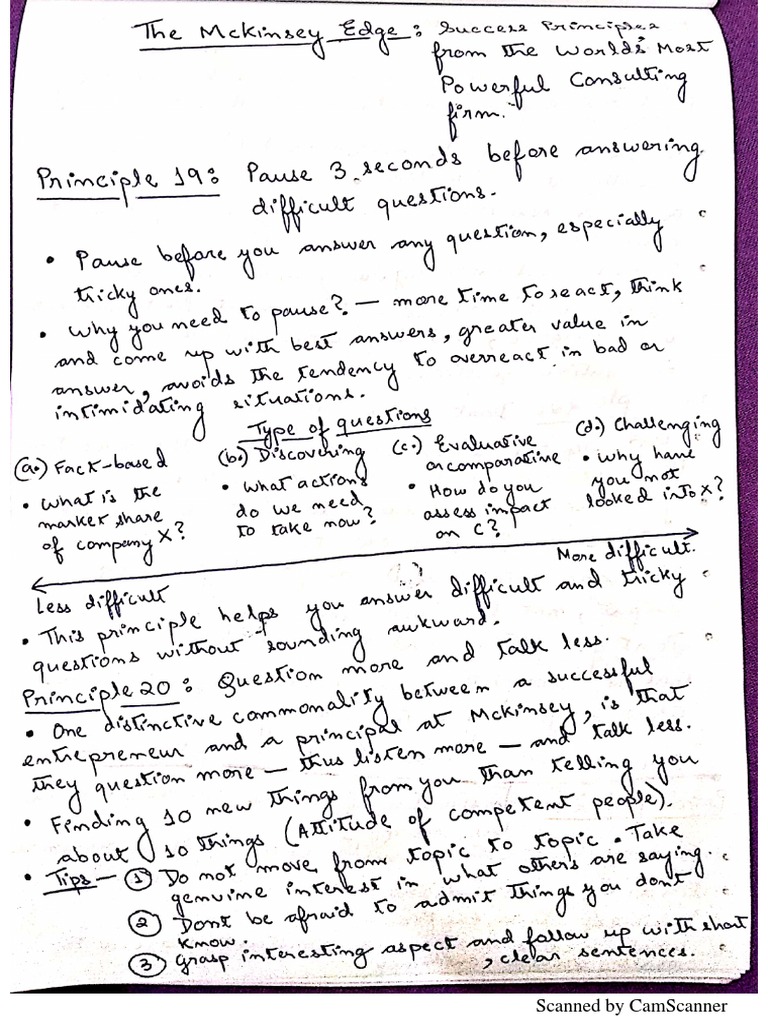 The McKinsey Edge: Success Principles
from the World's Most
Powerful Consulting
firm.
Principle 19: Pause 3 seconds before answering
difficult questions.
• Pause before you answer any question, especially
tricky ones.
• Why you need to pause? — more time to react, think
and come up with best answers, greater value in
answer, avoids the tendency to overreact in bad or
intimidating situations.
Type of questions
(a.) Fact-based (b.) Discovering (c.) Evaluative or comparative (d.) Challenging
• What is the market share of company X?
• What actions do we need to take now?
• How do you assess impact on C?
• Why have you not looked into X?
More difficult.
Less difficult
• This principle helps you answer difficult and tricky
questions without sounding awkward.
Principle 20: Question more and talk less.
• One distinctive commonality between a successful
entrepreneur and a principal at McKinsey, is that
they question more — thus listen more — and talk less.
• Finding 10 new things from you than telling you
about 10 things (Attitude of competent people).
• Tips — 1 Do not move from topic to topic. Take
genuine interest in what others are saying.
2 Dont be afraid to admit things you dont
know.
3 Grasp interesting aspect and follow up with short
, clear sentences.
Scanned by CamScanner